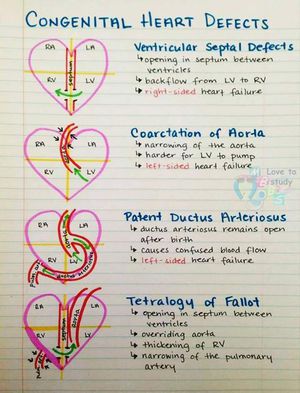 CONGENITAL HEART DEFECTS
RA
LA
septum
RV
LV
Ventricular Septal Defects
↳ opening in septum between
ventricles
↳ backflow from LV to RV
↳ right-sided heart failure
RA
LA
aorta
RV
LV
Coarctation of Aorta
↳ narrowing of the aorta
↳ harder for LV to pump
↳ left-sided heart failure
Love to
study
RA
LA
aorta
RV
LV
ductus arteriosus
Patent Ductus Arteriosus
↳ ductus arteriosus remains open
after birth
↳ causes confused blood flow
↳ left-sided heart failure
RA
LA
septum
aorta
RV
LV
Tetralogy of Fallot
↳ opening in septum between
ventricles
↳ overriding aorta
↳ thickening of RV
↳ narrowing of the pulmonary
artery